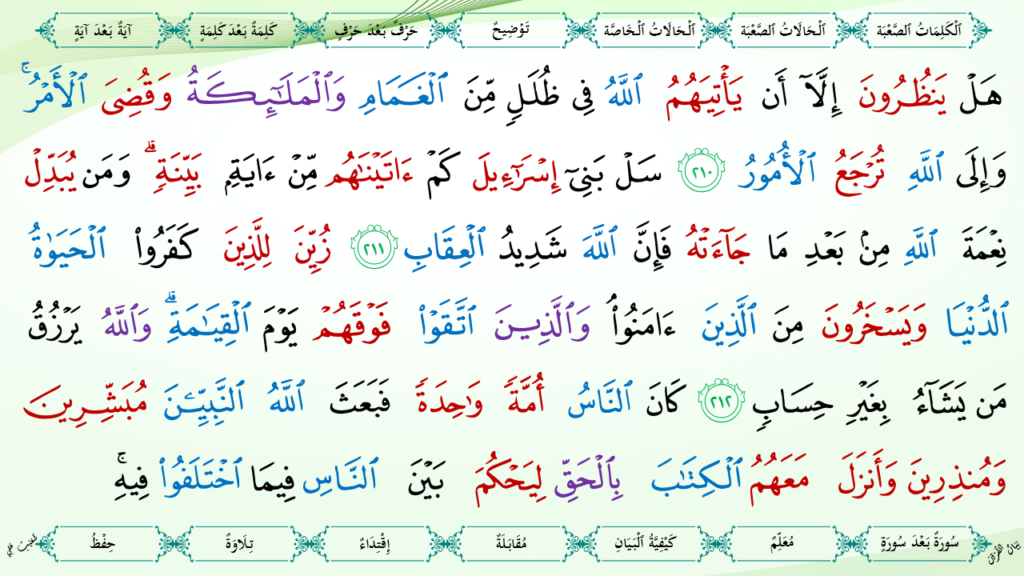 اَلْكَلِمَاتُ الصَّعْبَةُ
اَلْحَالَاتُ الصَّعْبَةُ
اَلْحَالَاتُ الْخَاصَّةُ
تَوْضِيحٌ
حَرْفٌ بَعْدَ حَرْفٍ
كَلِمَةٌ بَعْدَ كَلِمَةٍ
آيَةٌ بَعْدَ آيَةٍ
هَلْ يَنظُرُونَ إِلَّآ أَن يَأْتِيَهُمُ ٱللَّهُ فِى ظُلَلٍ مِّنَ ٱلْغَمَامِ وَٱلْمَلَـٰٓئِكَةُ وَقُضِىَ ٱلْأَمْرُ ۚ
وَإِلَى ٱللَّهِ تُرْجَعُ ٱلْأُمُورُ ٢١٠ سَلْ بَنِىٓ إِسْرَٰٓءِيلَ كَمْ ءَاتَيْنَـٰهُم مِّنْ ءَايَةٍۭ بَيِّنَةٍ ۗ وَمَن يُبَدِّلْ
نِعْمَةَ ٱللَّهِ مِنۢ بَعْدِ مَا جَآءَتْهُ فَإِنَّ ٱللَّهَ شَدِيدُ ٱلْعِقَابِ ٢١١ زُيِّنَ لِلَّذِينَ كَفَرُوا۟ ٱلْحَيَوٰةُ
ٱلدُّنْيَا وَيَسْخَرُونَ مِنَ ٱلَّذِينَ ءَامَنُوا۟ ۘ وَٱلَّذِينَ ٱتَّقَوْا۟ فَوْقَهُمْ يَوْمَ ٱلْقِيَـٰمَةِ ۗ وَٱللَّهُ يَرْزُقُ
مَن يَشَآءُ بِغَيْرِ حِسَابٍ ٢١٢ كَانَ ٱلنَّاسُ أُمَّةً وَٰحِدَةً فَبَعَثَ ٱللَّهُ ٱلنَّبِيِّـۧنَ مُبَشِّرِينَ
وَمُنذِرِينَ وَأَنزَلَ مَعَهُمُ ٱلْكِتَـٰبَ بِٱلْحَقِّ لِيَحْكُمَ بَيْنَ ٱلنَّاسِ فِيمَا ٱخْتَلَفُوا۟ فِيهِ ۚ
بَيَانُ الْقُرْآنِ
سُورَةٌ بَعْدَ سُورَةٍ
مُعَلِّمٌ
كَيْفِيَّةُ الْبَيَانِ
مُقَابَلَةٌ
إِقْتِدَاءٌ
تِلَاوَةٌ
حِفْظٌ